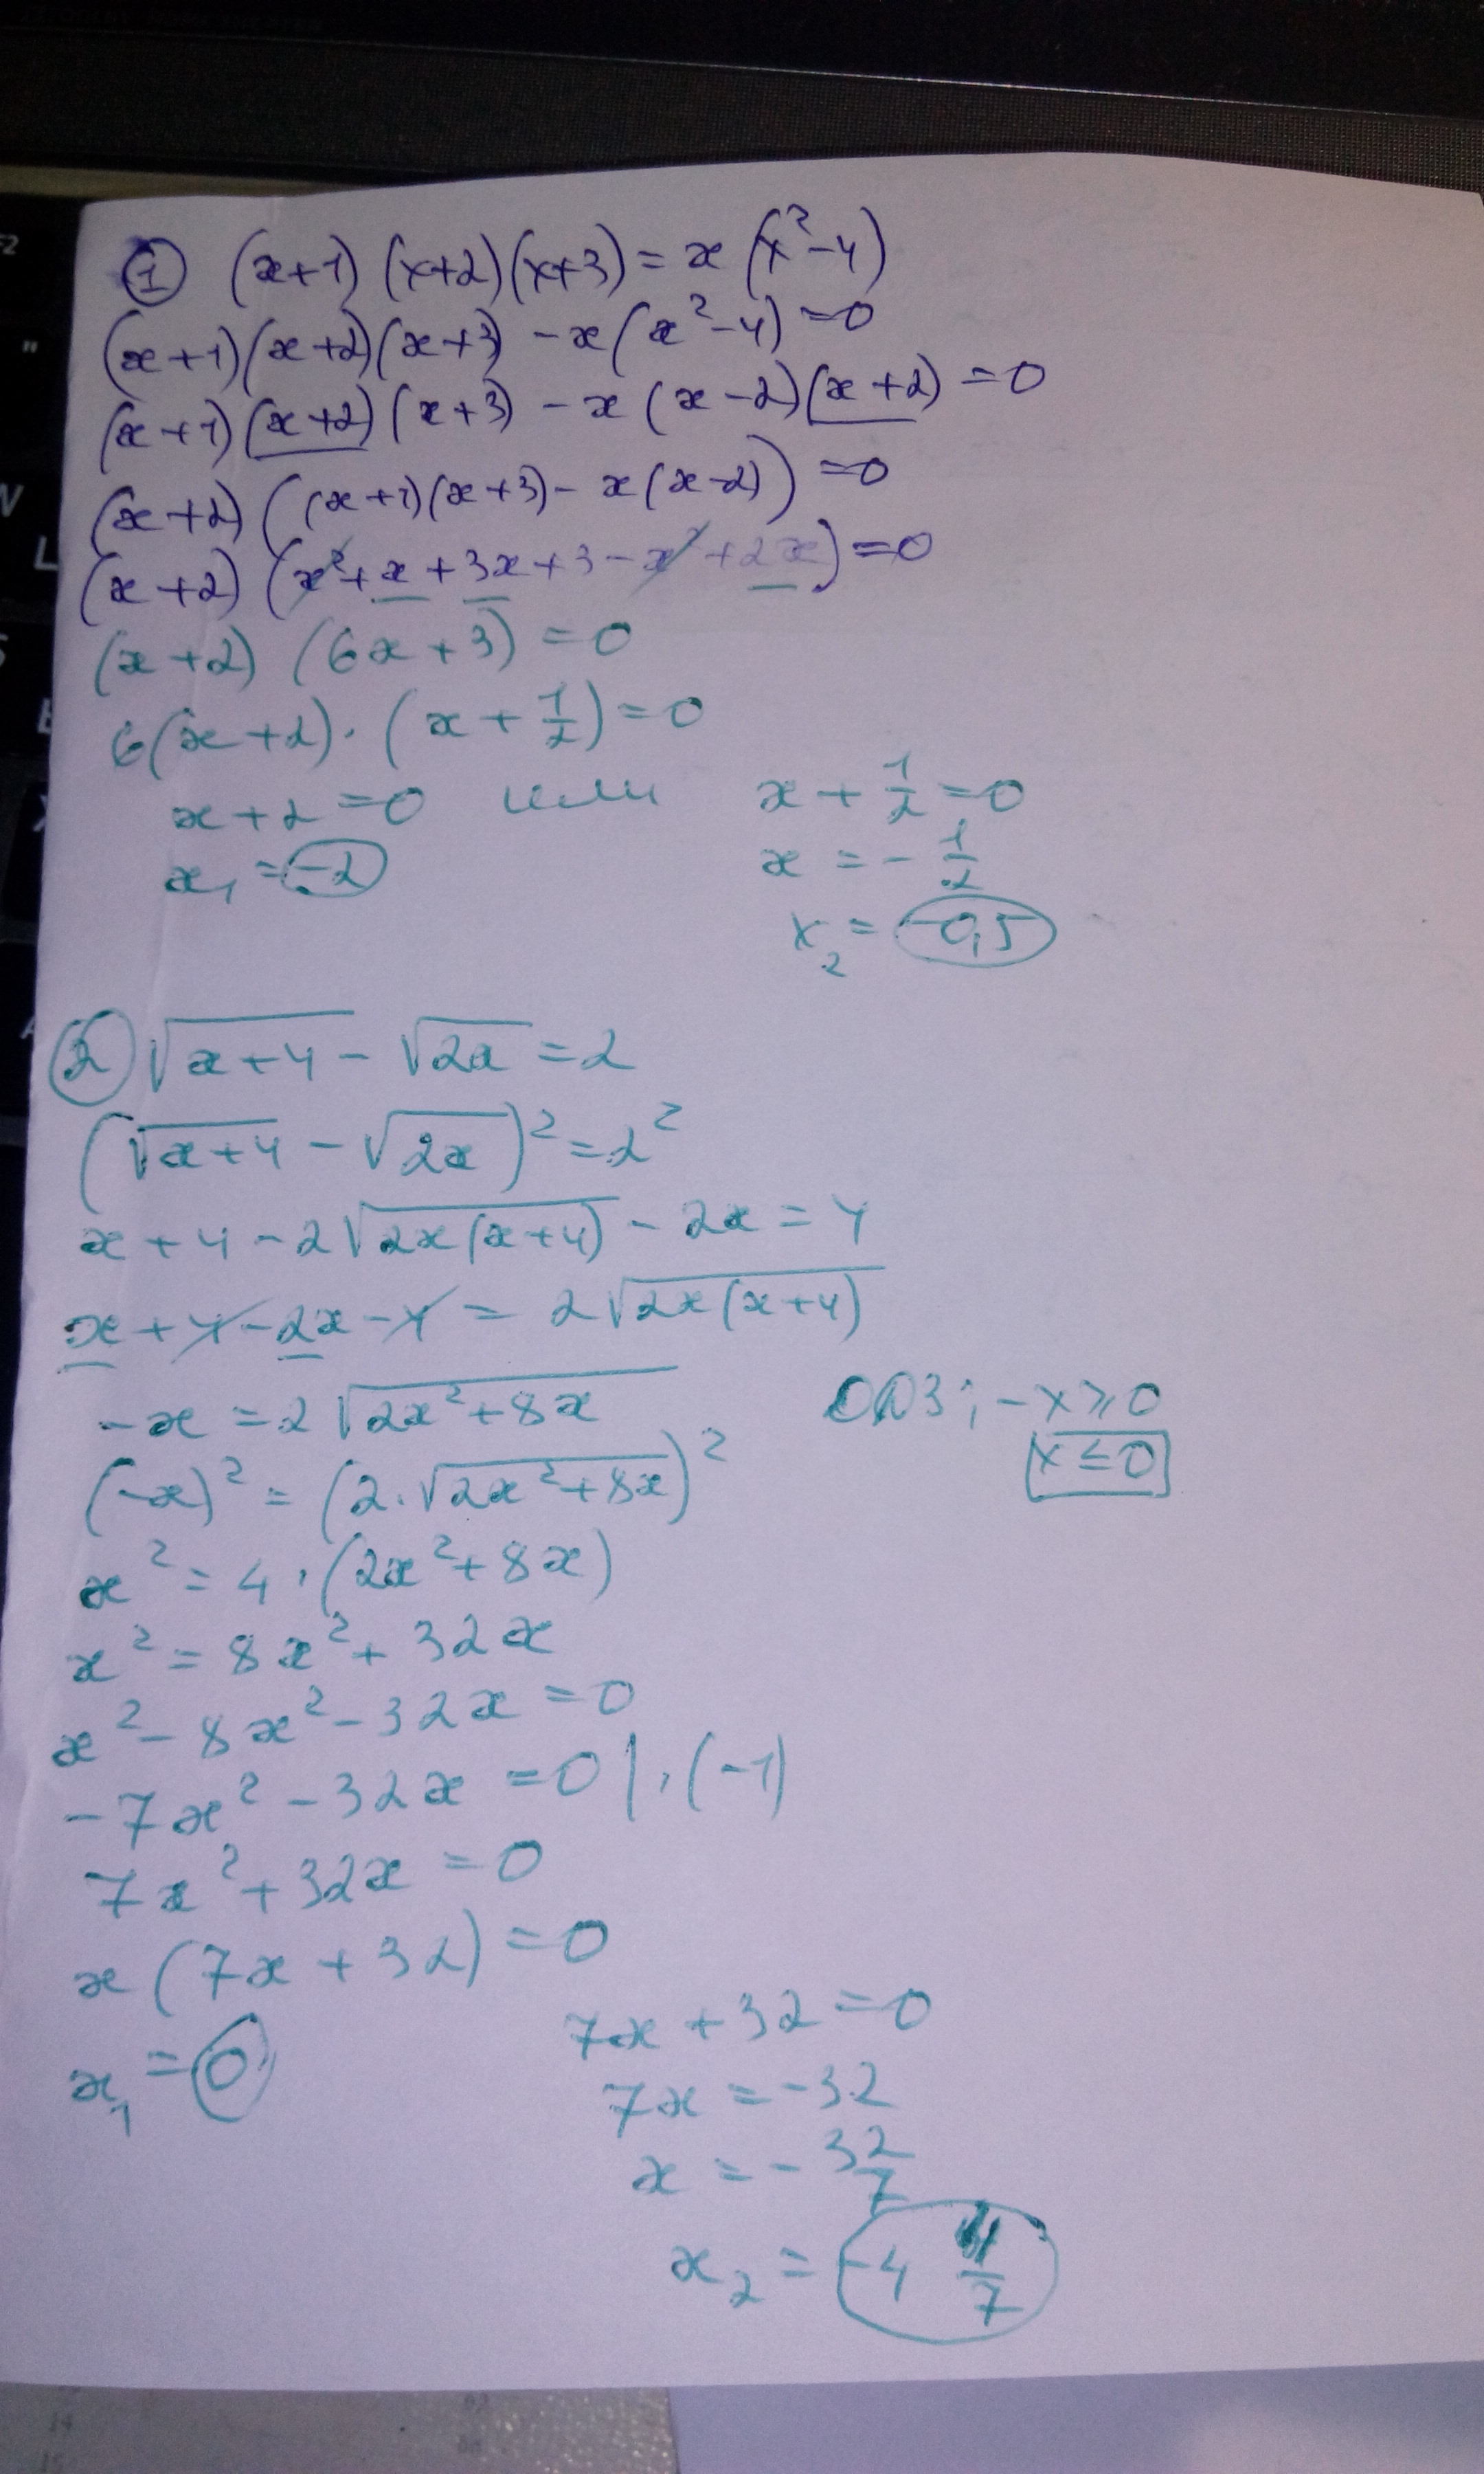 ① (x+1)(x+2)(x+3) = x(x²-4)
(x+1)(x+2)(x+3) - x(x²-4) = 0
(x+1)(x+2)(x+3) - x(x-2)(x+2) = 0
(x+2)((x+1)(x+3) - x(x-2)) = 0
(x+2)(x²+x+3x+3-x²+2x) = 0
(x+2)(6x+3) = 0
6(x+2)·(x+1/2) = 0
x+2=0 или x+1/2=0
x₁ = -2
x = -1/2
x₂ = -0,5
② √(x+4) - √(2x) = 2
(√(x+4) - √(2x))² = 2²
x+4-2√(2x(x+4)) - 2x = 4
x+4-2x-4 = 2√(2x(x+4))
-x = 2√(2x²+8x)
ОДЗ: -x ≥ 0
x ≤ 0
(-x)² = (2·√(2x²+8x))²
x² = 4·(2x²+8x)
x² = 8x²+32x
x²-8x²-32x = 0
-7x²-32x = 0 |·(-1)
7x²+32x = 0
x(7x+32) = 0
x₁ = 0
7x+32 = 0
7x = -32
x = -32/7
x₂ = -4 4/7